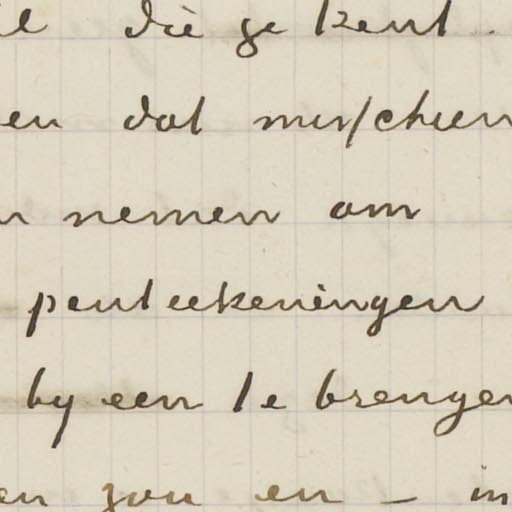 die ge kent.
en dat misschien
nemen om
penteekeningen
byeen te brengen
en zou en – in